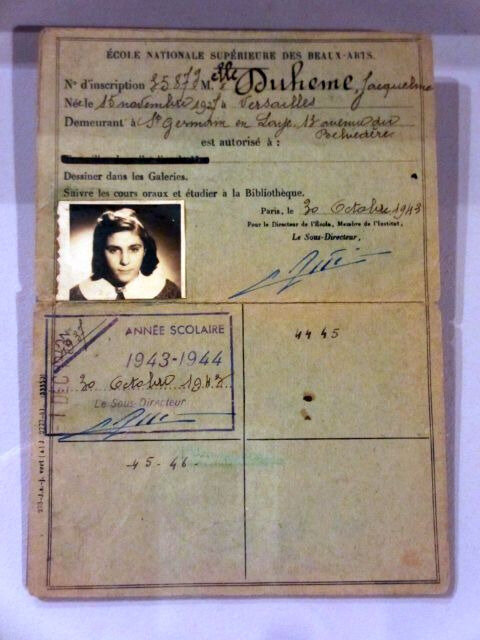 ÉCOLE NATIONALE SUPÉRIEURE DES BEAUX-ARTS.
N° d'inscription 35877 M.elle Duheme, Jacqueline
Né e le 16 novembre 1927 à Versailles
Demeurant à St Germain en Laye. 13 avenue du
Belvédère
est autorisé à :
Dessiner dans les Galeries.
Suivre les cours oraux et étudier à la Bibliothèque.
Paris, le 30 Octobre 1943
Pour le Directeur de l'École, Membre de l'Institut,
Le Sous-Directeur,
ANNÉE SCOLAIRE
1943-1944
30 Octobre 1943
Le Sous Directeur
1 DEC
44 45
45-46-